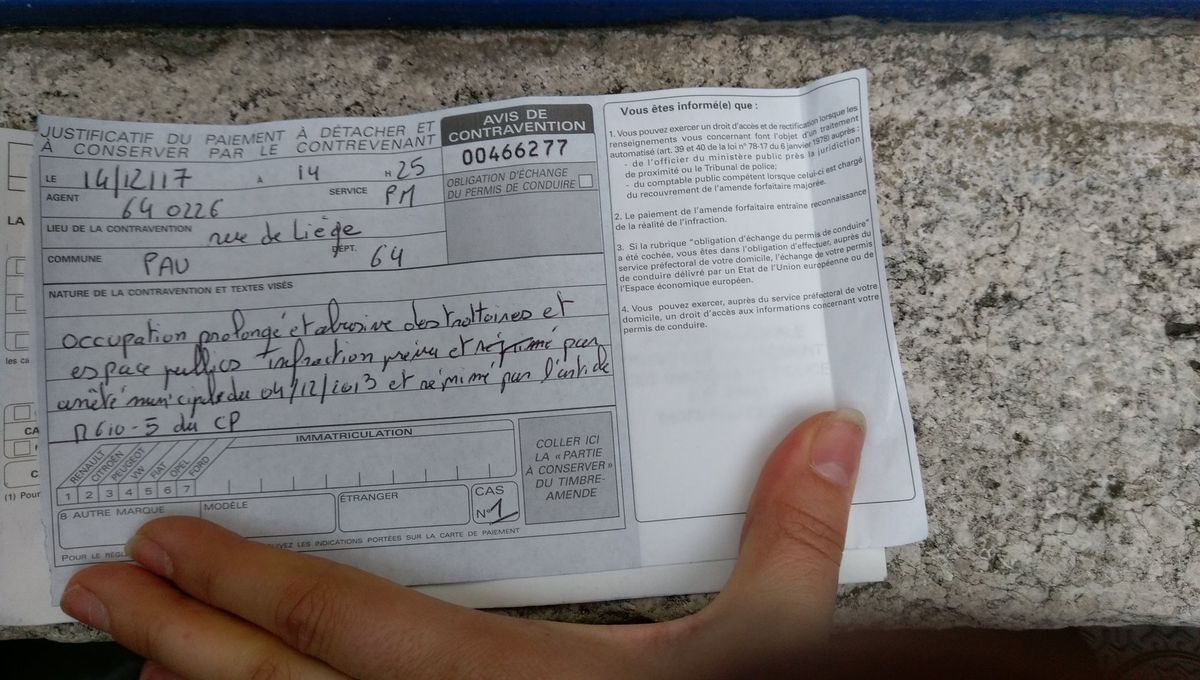 JUSTIFICATIF DU PAIEMENT À DÉTACHER ET
À CONSERVER PAR LE CONTREVENANT
AVIS DE
CONTRAVENTION
00466277
LE 14/12/17 À 14 H 25
AGENT 640226 SERVICE PM
OBLIGATION D'ÉCHANGE
DU PERMIS DE CONDUIRE
LIEU DE LA CONTRAVENTION rue de Liège
COMMUNE PAU DÉPT. 64
NATURE DE LA CONTRAVENTION ET TEXTES VISÉS
occupation prolongé et abusive des trottoires et
espace publics infraction prévu et réprimé par
arrêté municipale du 04/12/2013 et réprimé par l'article
R610-5 du CP
IMMATRICULATION
RENAULT
CITROËN
PEUGEOT
VW
FIAT
OPEL
FORD
1 2 3 4 5 6 7
8 AUTRE MARQUE
MODÈLE
ÉTRANGER
CAS
N° 1
COLLER ICI
LA « PARTIE
À CONSERVER »
DU TIMBRE-
AMENDE
POUR LE RÈGL
UVEZ LES INDICATIONS PORTÉES SUR LA CARTE DE PAIEMENT
Vous êtes informé(e) que :
1. Vous pouvez exercer un droit d'accès et de rectification lorsque les
renseignements vous concernant font l'objet d'un traitement
automatisé (art. 39 et 40 de la loi n° 78-17 du 6 janvier 1978) auprès :
- de l'officier du ministère public près la juridiction
de proximité ou le Tribunal de police;
- du comptable public compétent lorsque celui-ci est chargé
du recouvrement de l'amende forfaitaire majorée.
2. Le paiement de l'amende forfaitaire entraîne reconnaissance
de la réalité de l'infraction.
3. Si la rubrique "obligation d'échange du permis de conduire"
a été cochée, vous êtes dans l'obligation d'effectuer, auprès du
service préfectoral de votre domicile, l'échange de votre permis
de conduire délivré par un Etat de l'Union européenne ou de
l'Espace économique européen.
4. Vous pouvez exercer, auprès du service préfectoral de votre
domicile, un droit d'accès aux informations concernant votre
permis de conduire.
LA
les ca
CA
C
(1) Pour